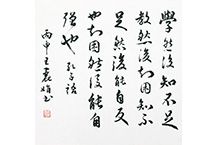 學然後知不足
教然後知困知不
足然後能自反
也知困然後能自
強也 孔子語
丙申王
書